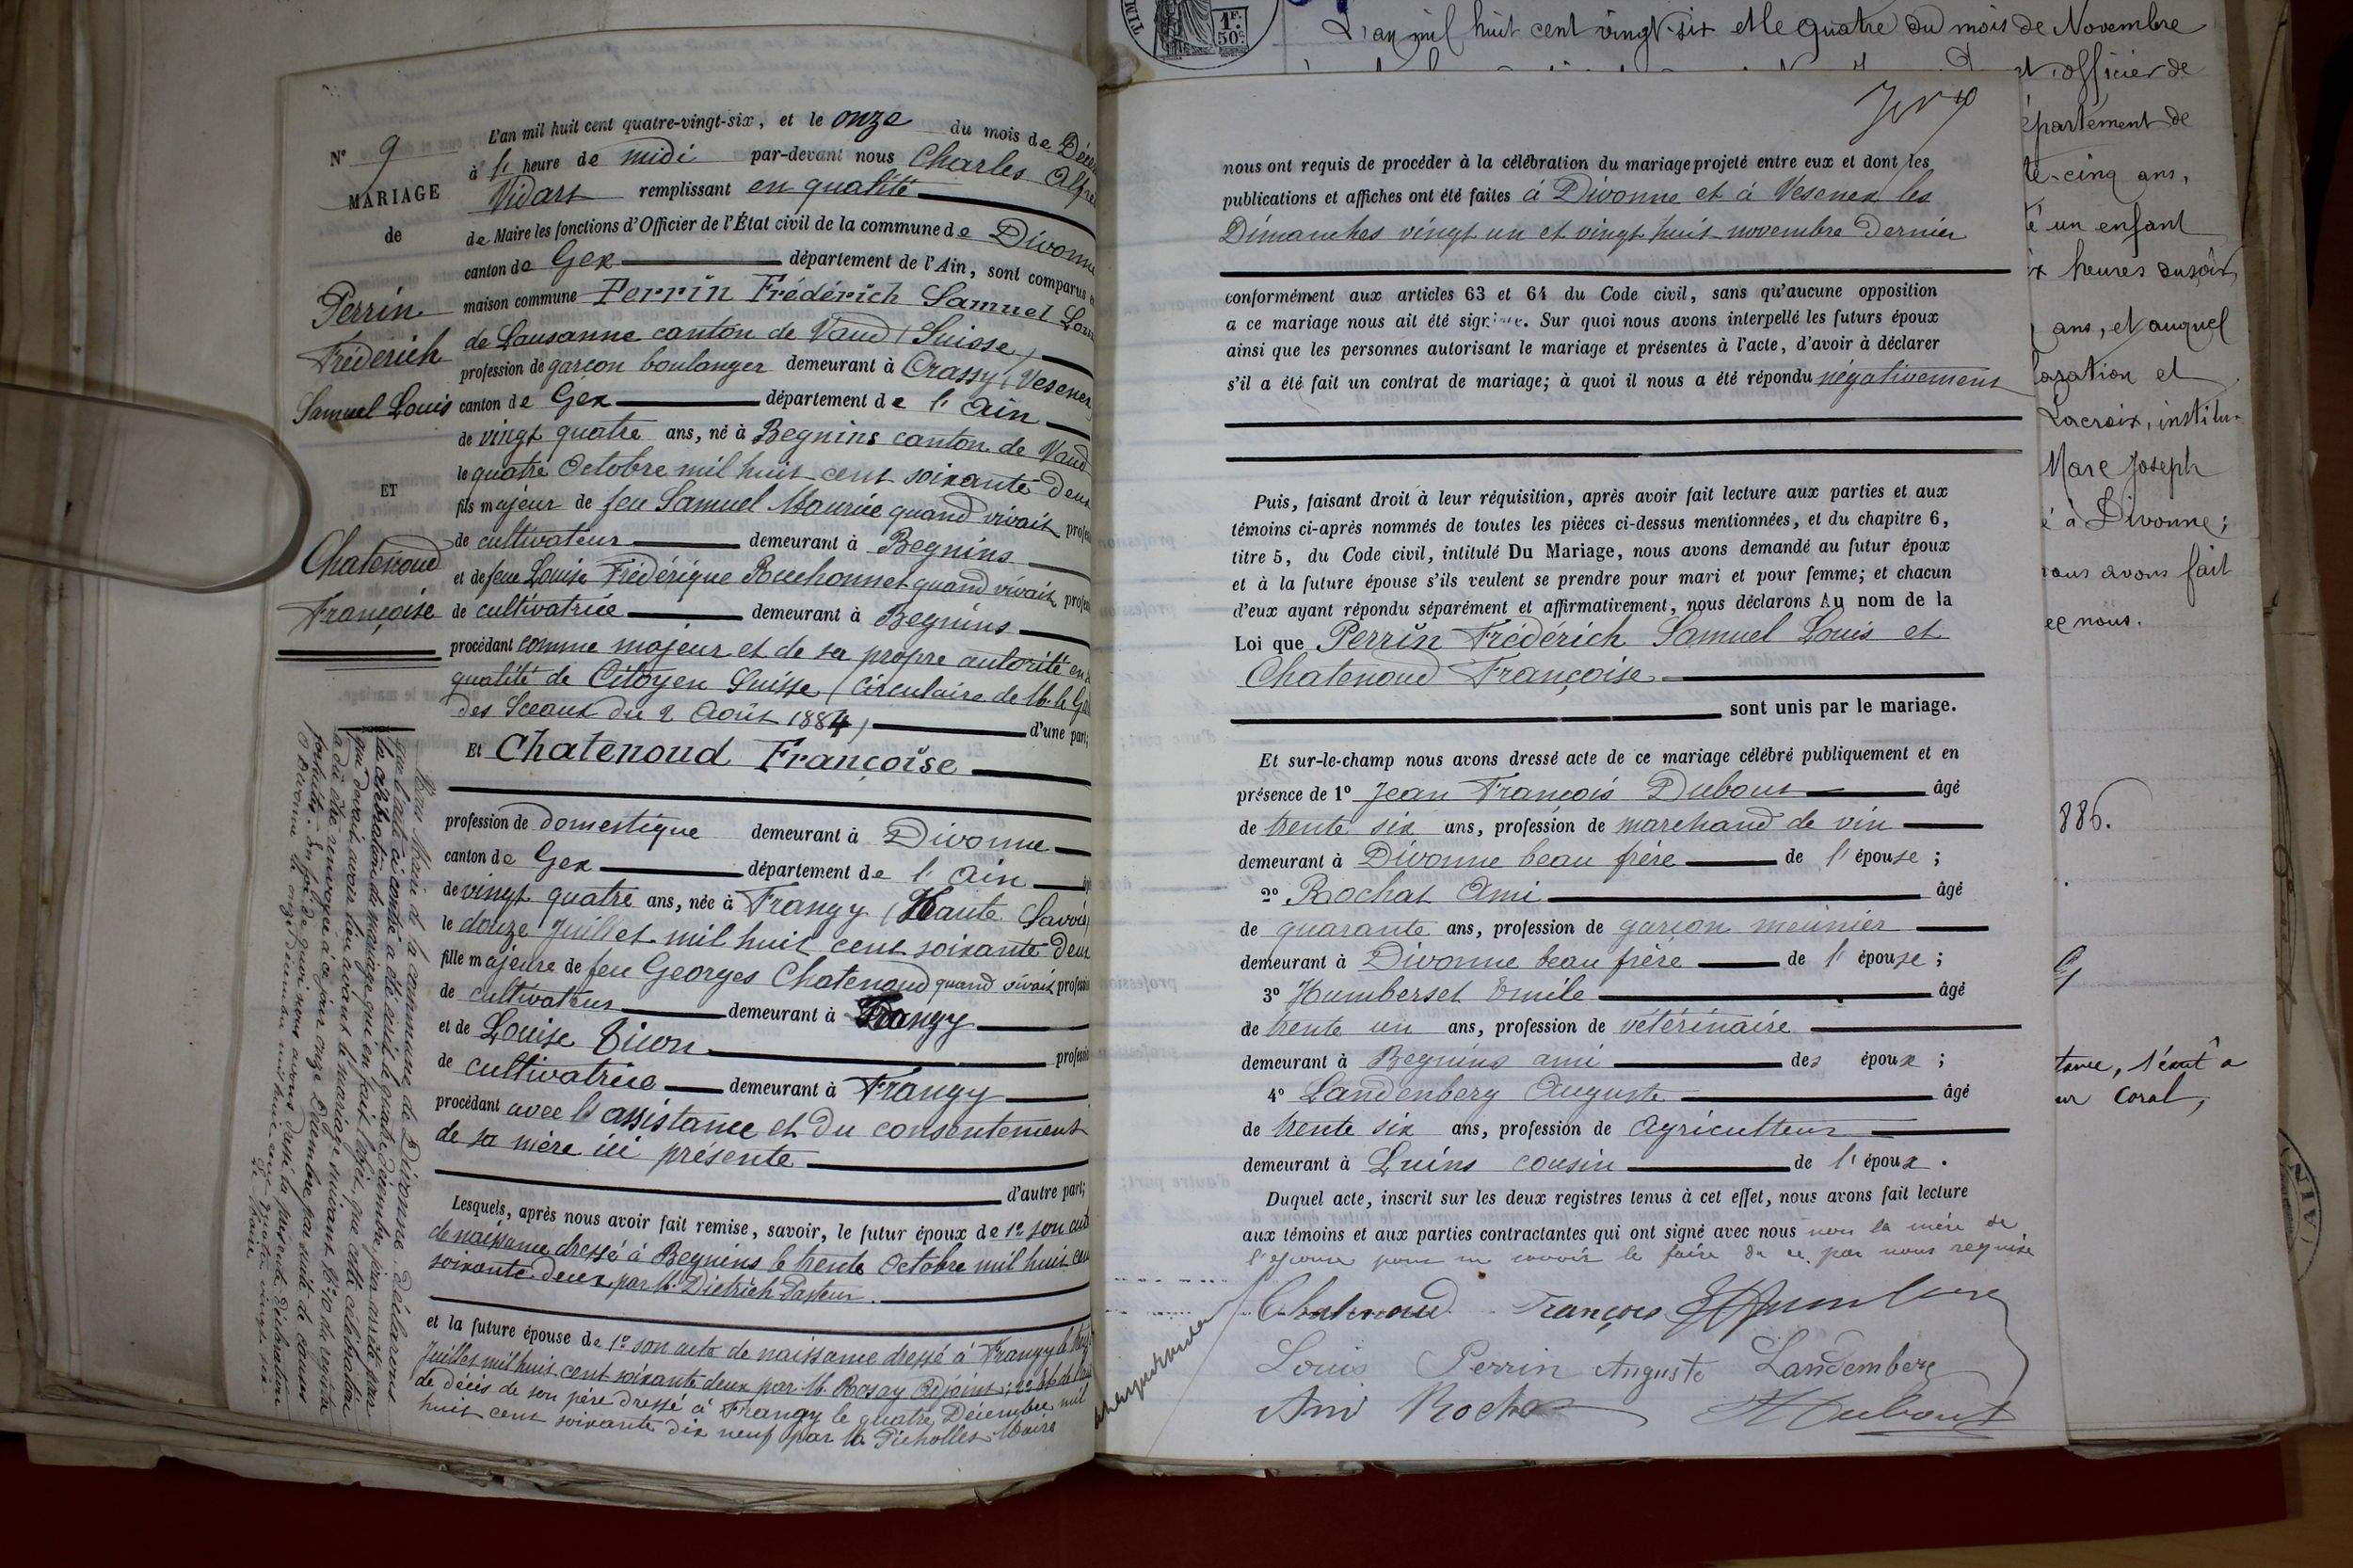 N° 9
MARIAGE
de
Perrin
Fréderich
Samuel Louis
ET
Chatenoud
Françoise
L'an mil huit cent quatre-vingt-six, et le onze du mois de Déce
à l' heure de midi par-devant nous Charles Alfre
Vidart remplissant en qualité
de Maire les fonctions d'Officier de l'État civil de la commune de Divonne
canton de Gex département de l'Ain, sont comparus
maison commune Perrin Frédérich Samuel Lou
de Lausanne canton de Vaud (Suisse)
profession de garçon boulanger demeurant à Crassy (Vesenex
canton de Gex département de l'Ain
de vingt quatre ans, né à Begnins canton de Vaud
le quatre Octobre mil huit cent soixante deux
fils majeur de feu Samuel Maurice quand vivait profes
de cultivateur demeurant à Begnins
et de feue Louise Frédérique Ruchonnet quand vivait profes
de cultivatrice demeurant à Begnins
procédant comme majeur et de sa propre autorité en
qualité de Citoyen Suisse (circulaire de M. le G
des Sceaux du 2 Août 1884) d'une part;
Et Chatenoud Françoise
profession de domestique demeurant à Divonne
canton de Gex département de l'Ain
de vingt quatre ans, née à Frangy (Haute Savoie)
le douze Juillet mil huit cent soixante deux
fille majeure de feu Georges Chatenoud quand vivait profession
de cultivateur demeurant à Frangy
et de Louise profession
de cultivatrice demeurant à Frangy
procédant avec l'assistance et du consentement
de sa mère ici présente
d'autre part;
Lesquels, après nous avoir fait remise, savoir, le futur époux de 1° son acte
de naissance dressé à Begnins le trente Octobre mil huit cent
soixante deux par M. Dietrich Pasteur.
et la future épouse de 1° son acte de naissance dressé à Frangy le
Juillet mil huit cent soixante deux par M. Rosay Adjoint; 2°
de décès de son père dressé à Frangy le quatre Décembre mil
huit cent soixante dix neuf par M. Maire
Nous Maire de la commune de Divonne déclarons
que l'acte ci contre a été écrit le quatre décembre pour assister pour
la célébration du mariage que en fait l'objet, que cette célébration
qui devait avoir lieu avant le mariage suivant N° 10 du registre
a dû être renvoyée à ce jour onze Décembre par suite de causes
fortuites. En foi de quoi nous avons dressé la présente déclaration
à Divonne le onze décembre mil huit cent quatre vingt six
Le Maire
nous ont requis de procéder à la célébration du mariage projeté entre eux et dont les
publications et affiches ont été faites à Divonne et à Vesenex les
Dimanches vingt un et vingt huit novembre dernier
conformément aux articles 63 et 64 du Code civil, sans qu'aucune opposition
a ce mariage nous ait été signifiée. Sur quoi nous avons interpellé les futurs époux
ainsi que les personnes autorisant le mariage et présentes à l'acte, d'avoir à déclarer
s'il a été fait un contrat de mariage; à quoi il nous a été répondu négativement
Puis, faisant droit à leur réquisition, après avoir fait lecture aux parties et aux
témoins ci-après nommés de toutes les pièces ci-dessus mentionnées, et du chapitre 6,
titre 5, du Code civil, intitulé Du Mariage, nous avons demandé au futur époux
et à la future épouse s'ils veulent se prendre pour mari et pour femme; et chacun
d'eux ayant répondu séparément et affirmativement, nous déclarons Au nom de la
Loi que Perrin Frédérich Samuel Louis et
Chatenoud Françoise
sont unis par le mariage.
Et sur-le-champ nous avons dressé acte de ce mariage célébré publiquement et en
présence de 1° Jean François Dubout âgé
de trente six ans, profession de marchand de vin
demeurant à Divonne beau frère de l'épouse;
2° Rochat Ami âgé
de quarante ans, profession de garçon meunier
demeurant à Divonne beau frère de l'épouse;
3° Humberset Emile âgé
de trente un ans, profession de vétérinaire
demeurant à Begnins ami des époux;
4° Landenberg Auguste âgé
de trente six ans, profession de Agriculteur
demeurant à Luins cousin de l'époux.
Duquel acte, inscrit sur les deux registres tenus à cet effet, nous avons fait lecture
aux témoins et aux parties contractantes qui ont signé avec nous non la mère de
l'épouse pour ne savoir le faire de ce par nous requise
Chatenoud François
Louis Perrin Auguste Landemberg
Ami Rochat Dubout
1F. 50c.
L'an mil huit cent vingt-six et le quatre du mois de Novembre
et officier de
épartement de
te-cinq ans,
té un enfant
ix heures du soir,
ans, et auquel
laration et
Lacroix, institu-
Marc Joseph
é à Divonne;
nous avons fait
ec nous.
886.